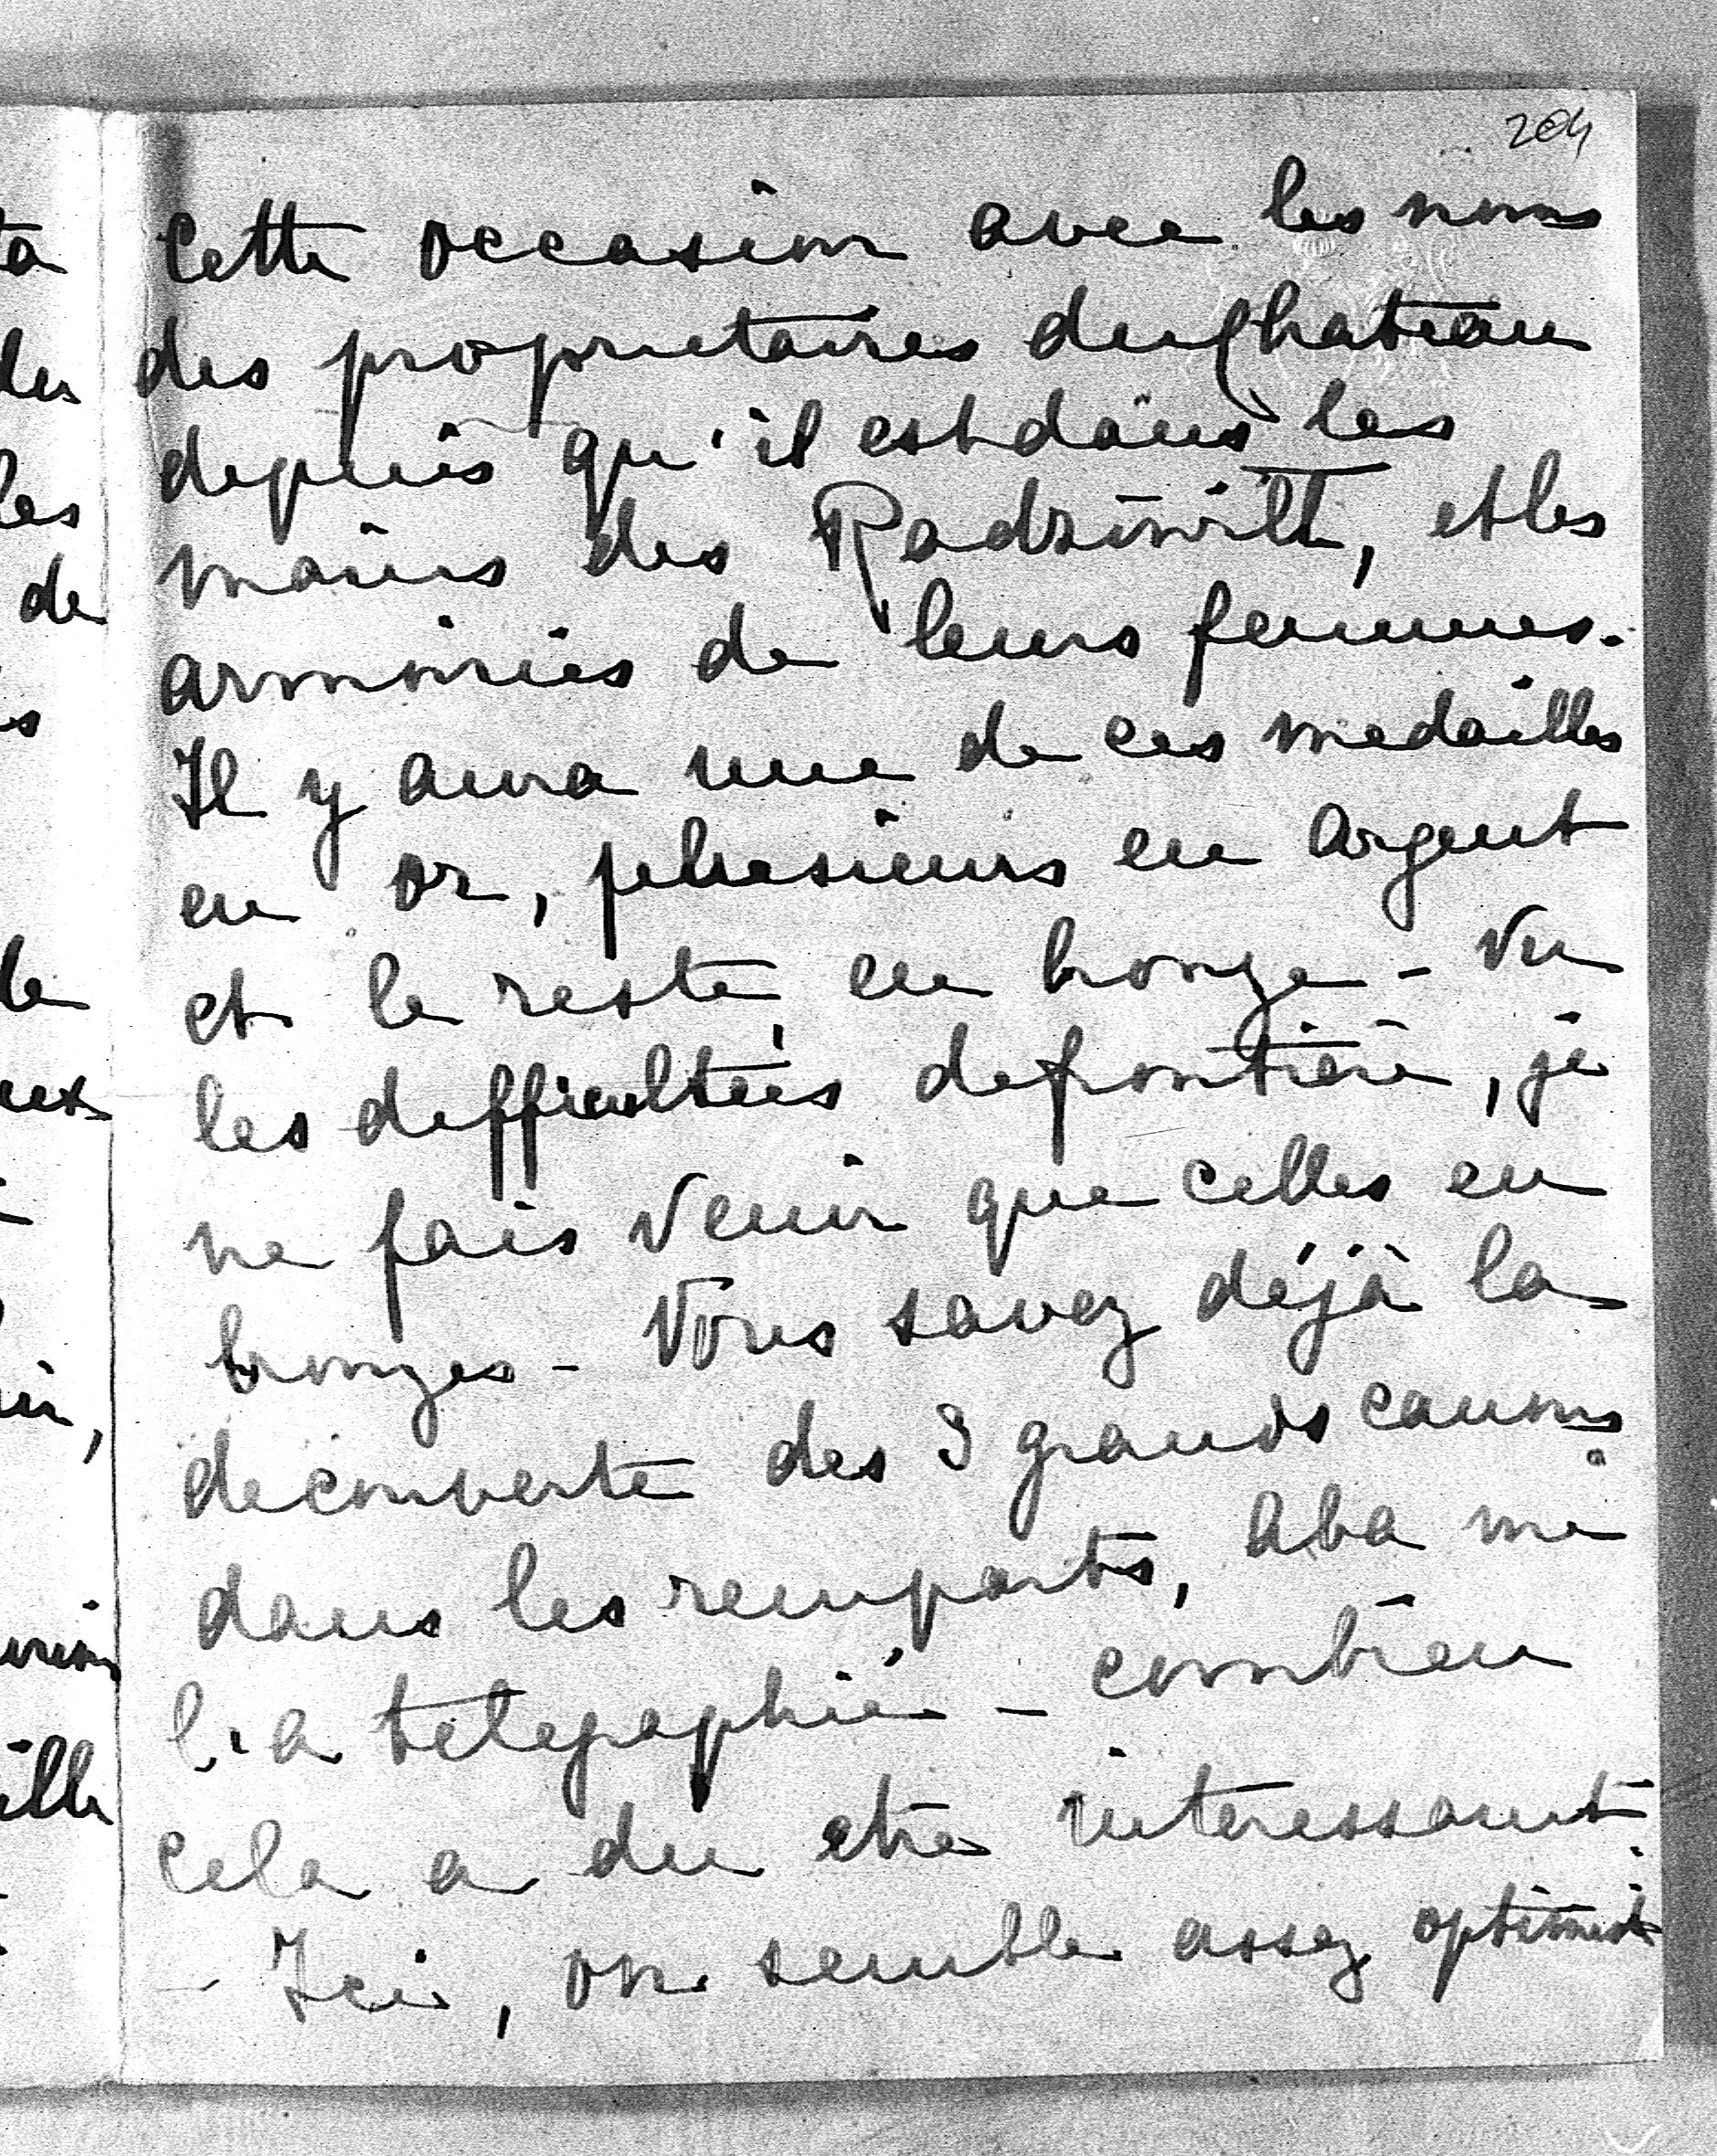 204
cette occasion avec les noms
des proprietaires du chateau
depuis qu'il est dans les
mains des Radziwill, et les
armoiries de leurs femmes.
Il y aura une de ces medailles
en or, plusieurs en argent
et le reste en bronze - Vu
les difficultés de frontière, je
ne fais venir que celles en
bronzes - Vous savez déjà la
decouverte des 3 grands canons
dans les remparts, Aba me
l'a telegraphié - combien
cela a du etre interessant.
- Ici, on semble assez optimist